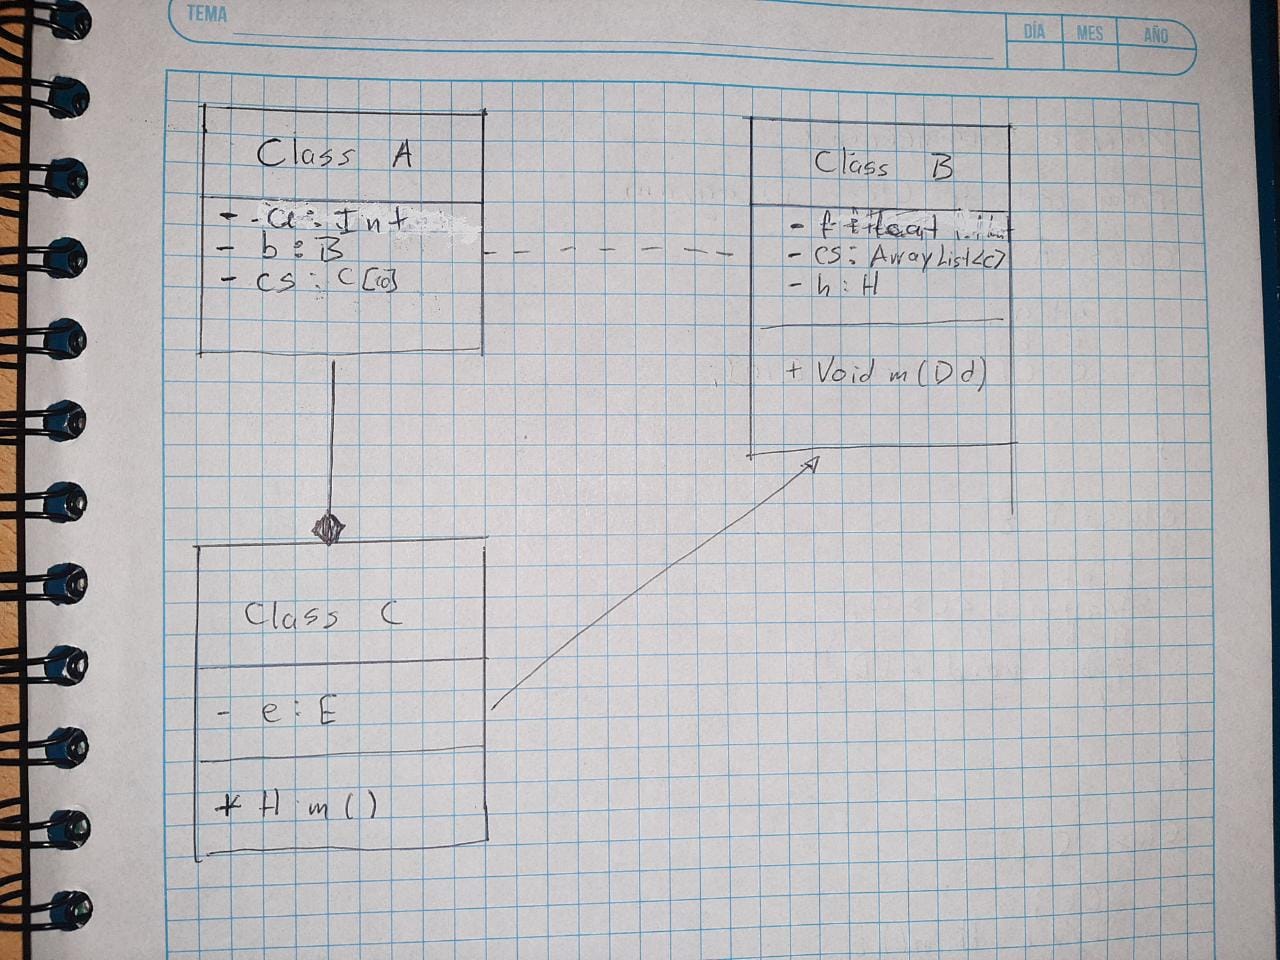 TEMA
DÍA MES AÑO
Class A
- a : Int
- b : B
- cs : C[10]
Class B
- f : float
- cs : ArrayList<C>
- h : H
+ Void m(D d)
Class C
- e : E
+ H m()